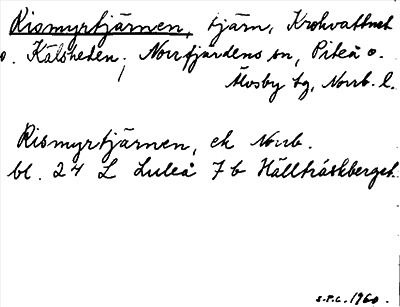 Rismyrtjärnen, tjärn, Krokvattnet
o. Kälsheden, Norrfjärdens sn, Piteå o.
Älvsby tg, Norrb. l.
Rismyrtjärnen, ek Norrb.
bl. 24 L Luleå 7 b Hällträskberget.
S.P.L. 1960.